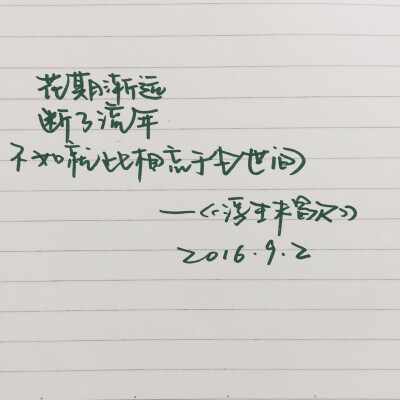 花期渐远
断了流年
不如就此相忘于尘世间
—《浮生未歇》
2016.9.2